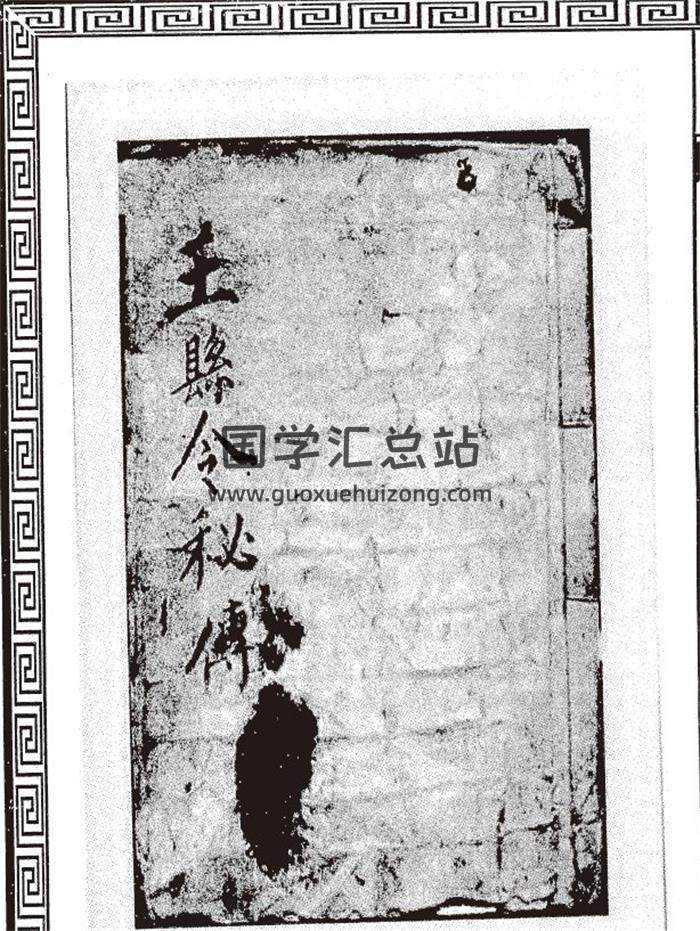 王縣令秘傳
国学汇总站
www.guoxuehuizong.com